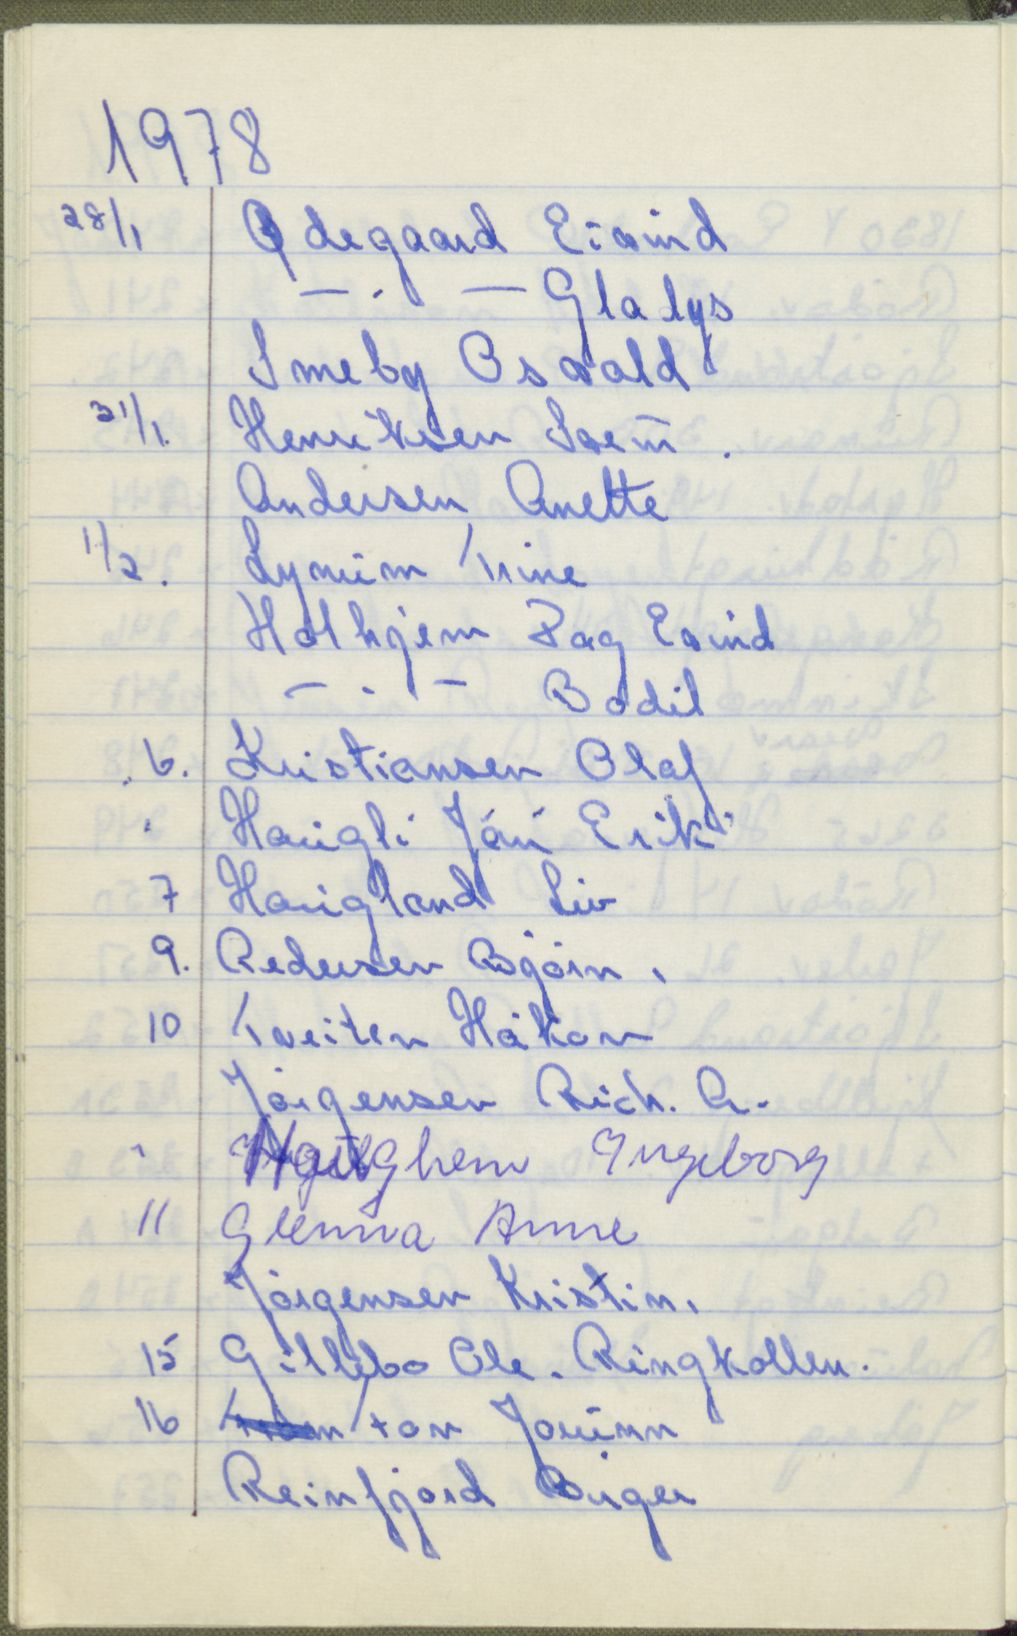 1978
28/1 Ødegaard Eivind
— . — Gladys
Smeby Osvald
31/1. Henriksen Svein.
Andersen Anette
1/2. Lynum Trine
Holhjem Dag Evind
— . — Bodil
6. Kristiansen Olaf
Haugli Jan Erik
7 Haugland Liv
9. Pedersen Bjørn.
10 Tveiten Håkon
Jørgensen Rich. A.
" Haughem Ingeborg
11 Glenna Anne
Jørgensen Kristin.
15 Gillebo Ole. Ringkollen.
16 Jorunn
Reinfjord Birger